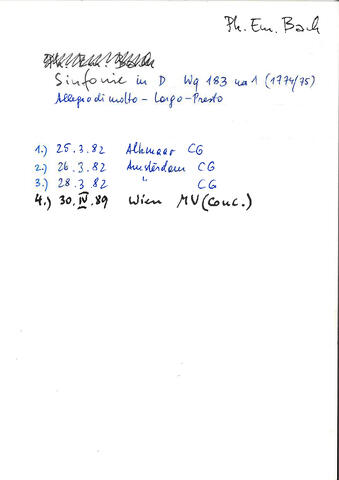 Ph. Em. Bach
Sinfonie in D Wq 183 no 1 (1774/75)
Allegro di molto – Largo – Presto
1.) 25.3.82 Alkmaar CG
2.) 26.3.82 Amsterdam CG
3.) 28.3.82 " CG
4.) 30.IV.89 Wien MV (Conc.)